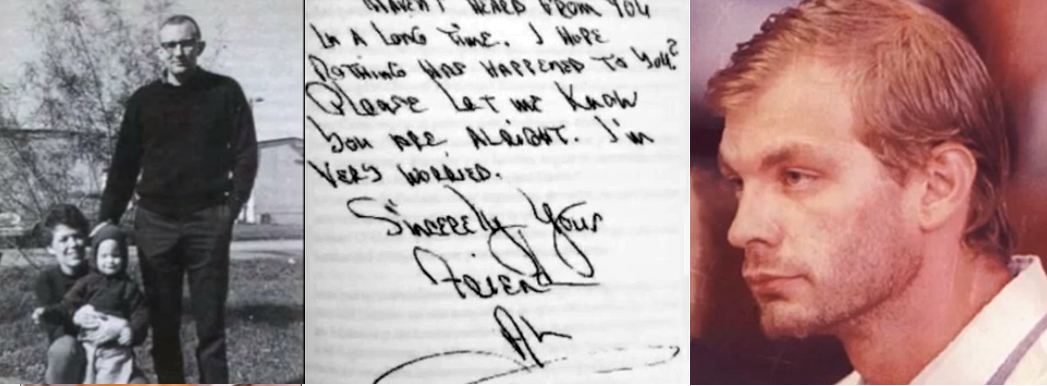 HAVEN'T HEARD FROM YOU
IN A LONG TIME. I HOPE
NOTHING HAS HAPPENED TO YOU?
PLEASE LET ME KNOW
YOU ARE ALRIGHT. I'M
VERY WORRIED.
SINCERELY YOUR
FRIEND